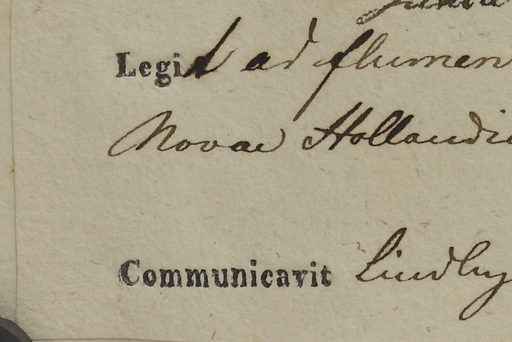 Legit ad flumen
Novae Hollandi
Communicavit Lindley